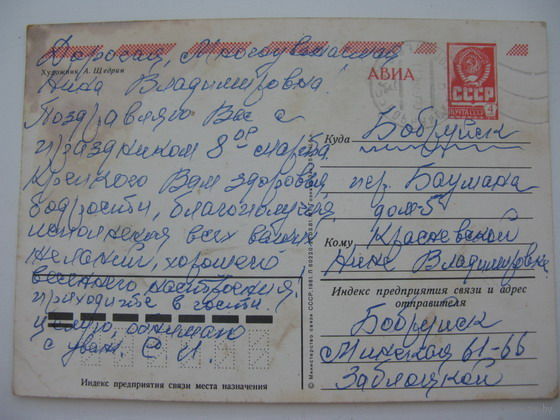 Дорогая, Многоуважаемая
Художник А. Щедрин
Нина Владимировна.
Поздравляю Вас с
праздником 8ое марта,
Крепкого Вам здоровья,
бодрости, благополучия,
исполнения всех ваших
желаний, хорошего
весеннего настроения.
приходите в гости
целую, обнимаю
с уваж. С И.
Индекс предприятия связи места назначения
АВИА
СССР
ПОЧТА
4
Куда Бобруйск
пер. Баумана
дом-5
Кому Красневской
Нине Владимировне
Индекс предприятия связи и адрес
отправителя
Бобруйск
Минская 61-66
Заблоцкой
© Министерство связи СССР. 198